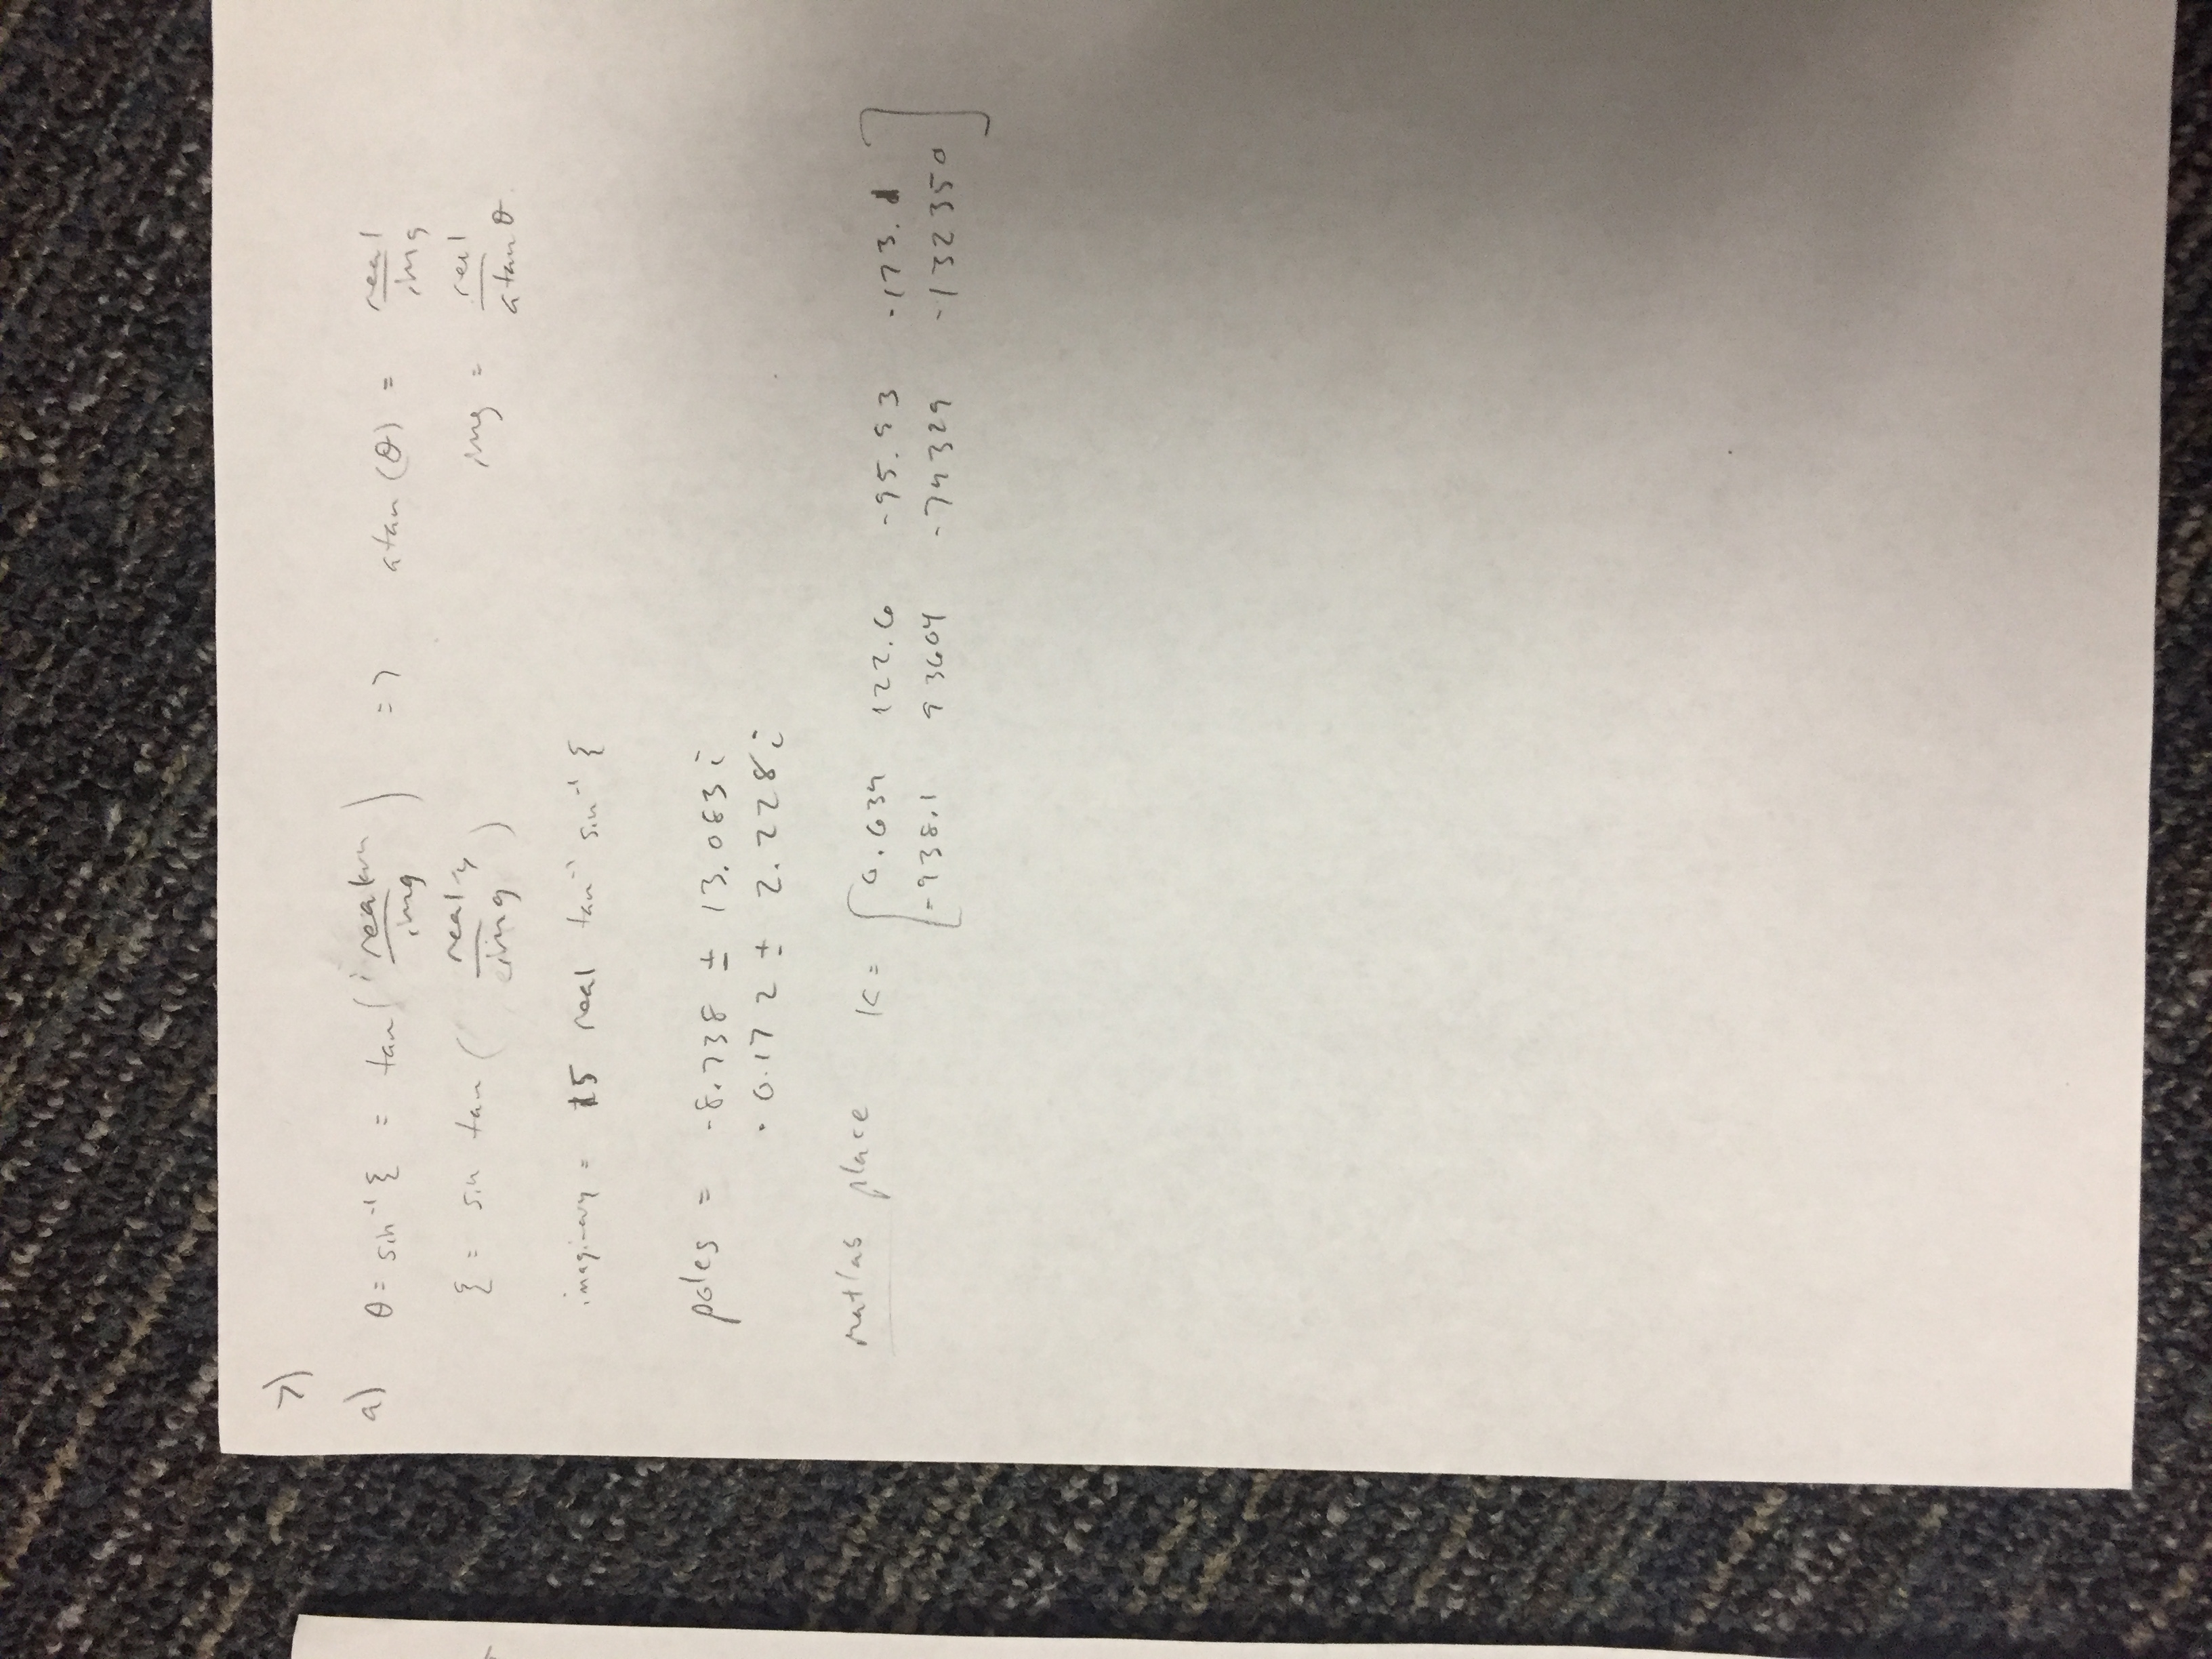 7)
a) θ = sin⁻¹ ξ = tan( real / img ) => atan(θ) = real / img
ξ = sin tan ( real / img ) img = real / atan θ
imaginary = 15 real tan⁻¹ sin⁻¹ ξ
poles = -8.738 ± 13.083 i
-0.172 ± 2.228 i
matlab place K = [ 0.634 122.6 -95.93 -173.1
-938.1 93604 -74329 -132350 ]